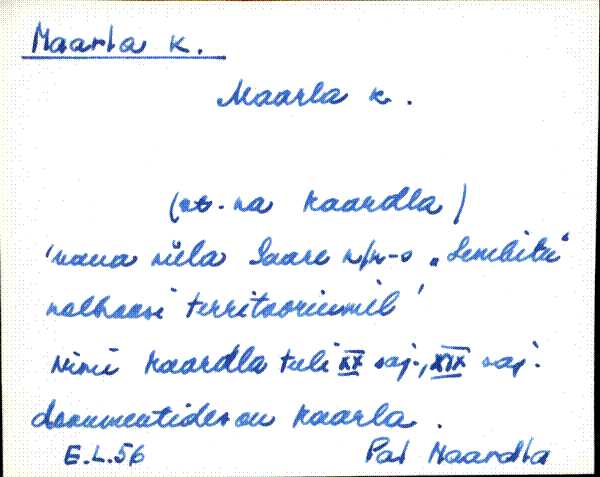 Maarla k.
Maarla k.
(ob. ka Kaardla)
'vana küla Saare k/n-s „Lembitu"
kolhoosi territooriumil'
Nimi Kaardla tuli XX saj., XIX saj.
dokumentides on Kaarla.
E.L.56 Pal Maardla